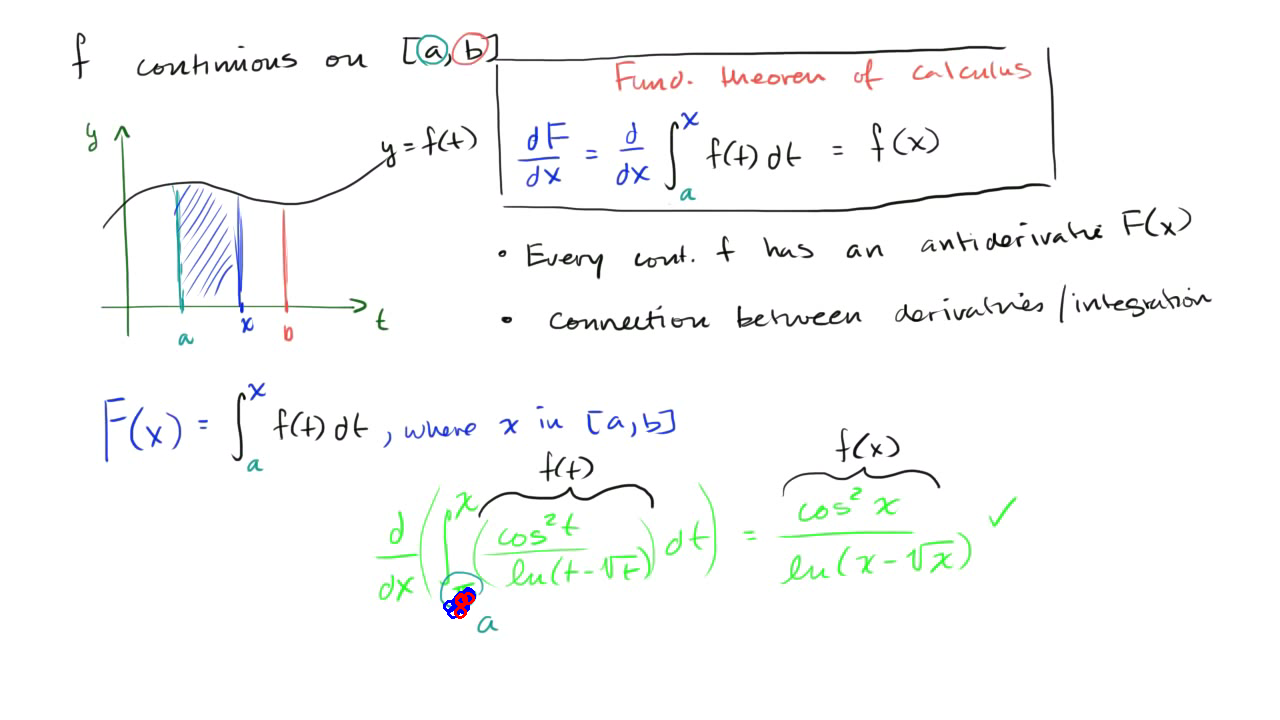 f continuous on [a, b]
Fund. theorem of calculus
dF/dx = d/dx ∫_a^x f(t) dt = f(x)
y
y = f(t)
a x b t
• Every cont. f has an antiderivative F(x)
• connection between derivatives/integration
F(x) = ∫_a^x f(t) dt, where x in [a, b]
f(t) f(x)
d/dx (∫^x (cos² t / ln(t - √t)) dt) = cos² x / ln(x - √x) ✓
a